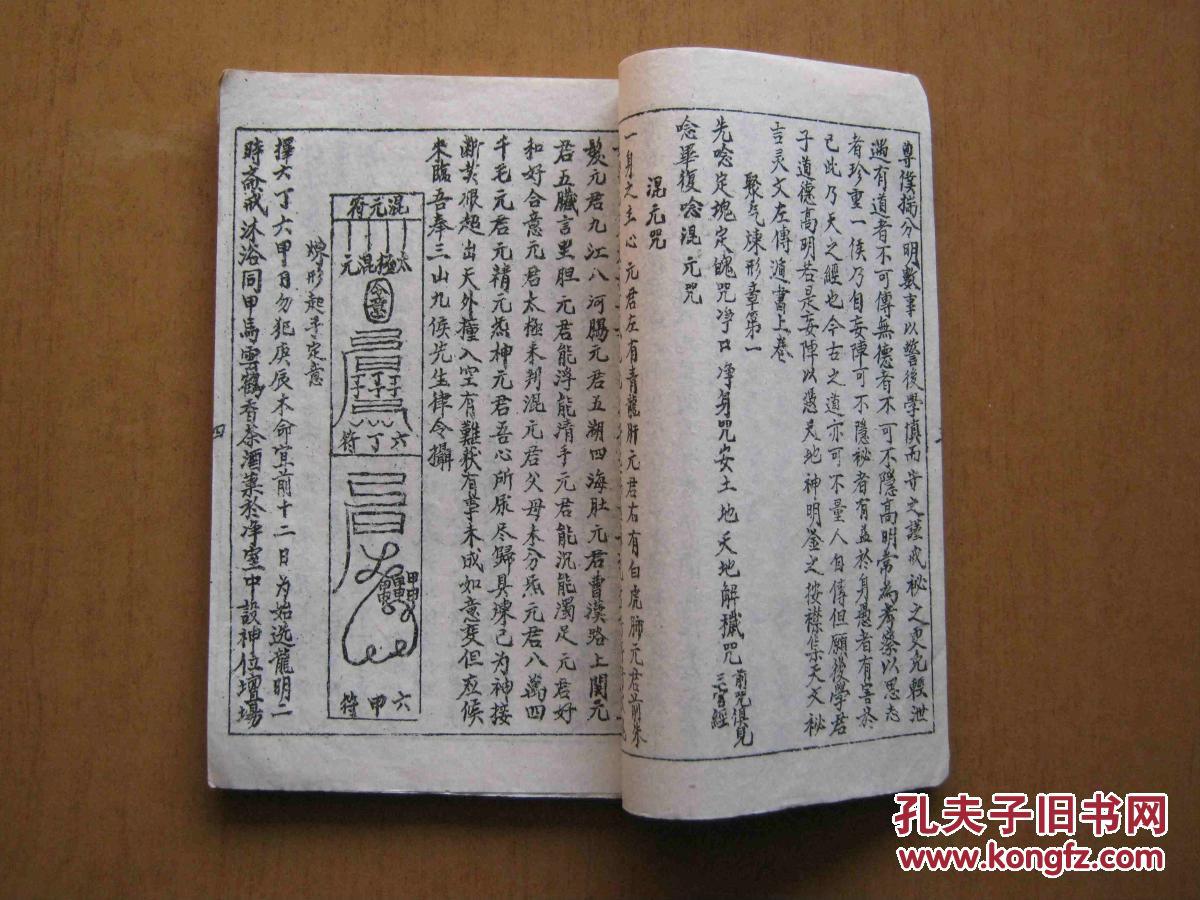 尊僕揣分明數事以警後學慎而守之謹戒秘之更免輕泄
遇有道者不可傳無德者不可不隱高明常為考察以思志
者珍重一侯乃自妄陣可不隱秘者有益於身愚者有害於
己此乃天之經也今古之道亦可不量人自傳但願後學君
子道德高明若是妄陣以憑灵地神明鉴之按襟集天文秘
言灵文左傳遁書上卷
聚气煉形章第一
先唸定魂定魄咒净口净身咒安土地天地解穢咒 前咒俱見三官經
唸畢復唸混元咒
混元咒
一身之主心元君左有青龍肝元君右有白虎肺元君前朱
髮元君九江八河腸元君五湖四海肚元君曹溪路上関元
君五臟言里胆元君能浮能清手元君能沉能濁足元君好
和好合意元君太極未判混元君父母未分炁元君八萬四
千毛元君元精元炁神元君吾心所愿尽歸具煉己為神接
断 艰超出天外撞入空有難救有事未成如意変但应候
來臨吾奉三山九侯先生律令攝
混元符
太極混元
六丁符
六甲符
煉形起手定意
擇六丁六甲日勿犯庚辰本命宜前十二日为始选龍明二
時斋戒沐浴同甲馬雲鶴香茶酒菓於净室中設神位壇場
四
孔夫子旧书网
www.kongfz.com